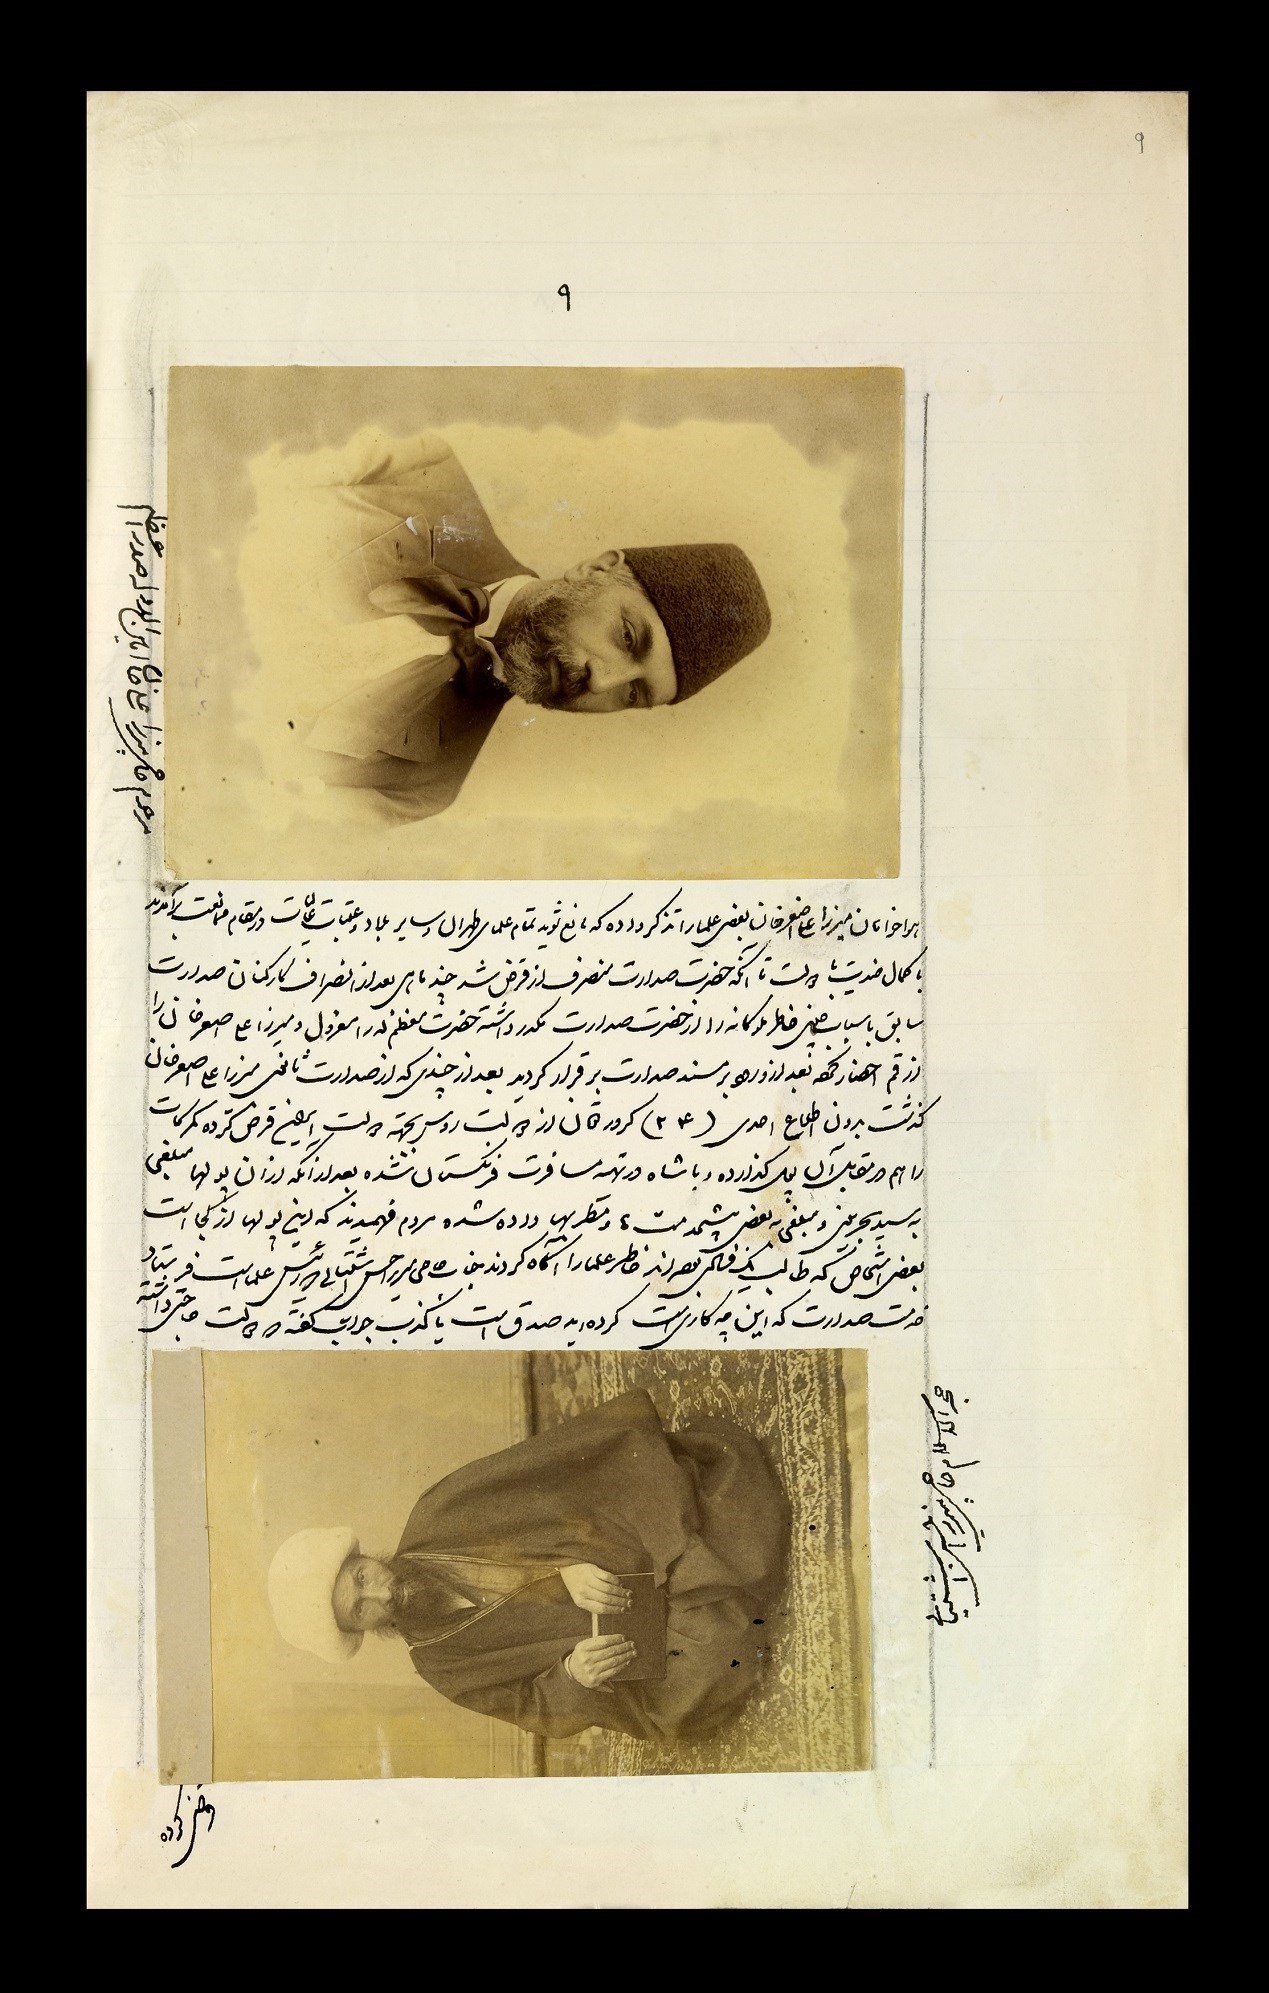 ۹
۹
مرحوم حاجی میرزا علی خان امین الدوله صدر اعظم
هواخواهان میرزا علی اصغر خان بعضی علما را تذکر داده که مانع شوید تمام علمای طهران و سایر بلاد و عتبات عالیات در مقام ممانعت برآمدند
با کمال ضدیت با دولت تا آنکه حضرت صدارت منصرف از قرض شد چند ماهی بعد از انصراف کارکنان صدارت
سابق باسباب چینی خاطر ملوکانه را از حضرت صدارت مکدر داشته حضرت معظم له را معزول و میرزا علی اصغر خان را
از قم احضار کرده بعد از ورود بر مسند صدارت برقرار کردید بعد از چندی که از صدارت ثانوی میرزا علی اصغر خان
گذشت بدون اطلاع احدی (۲۴) کرور تومان از دولت روس بجهة دولت ایران قرض کرده گمرکات
را هم در مقابل آن پول گذارده و با شاه در تهیه مسافرت فرنگستان شده بعد از آنکه از آن پولها مبلغی
به سید بحرینی و مبلغی به بعضی پیشخدمت ها و مطربها داده شده مردم فهمیدند که این پولها از کجا است
بعضی اشخاص که طالب نیک نامی بودند خاطر علما را آگاه کردند جناب حاجی میرزا حسن آشتیانی که رئیس علما است فرستاد
خدمت صدارت که این چه کاری است کرده اید صدق است یا کذب جواب گفته دولت محتاج داشته
میرزا حسن آشتیانی
قرض کرده